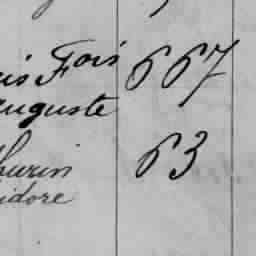 is Fois 667
uguste
hurin 63
idore